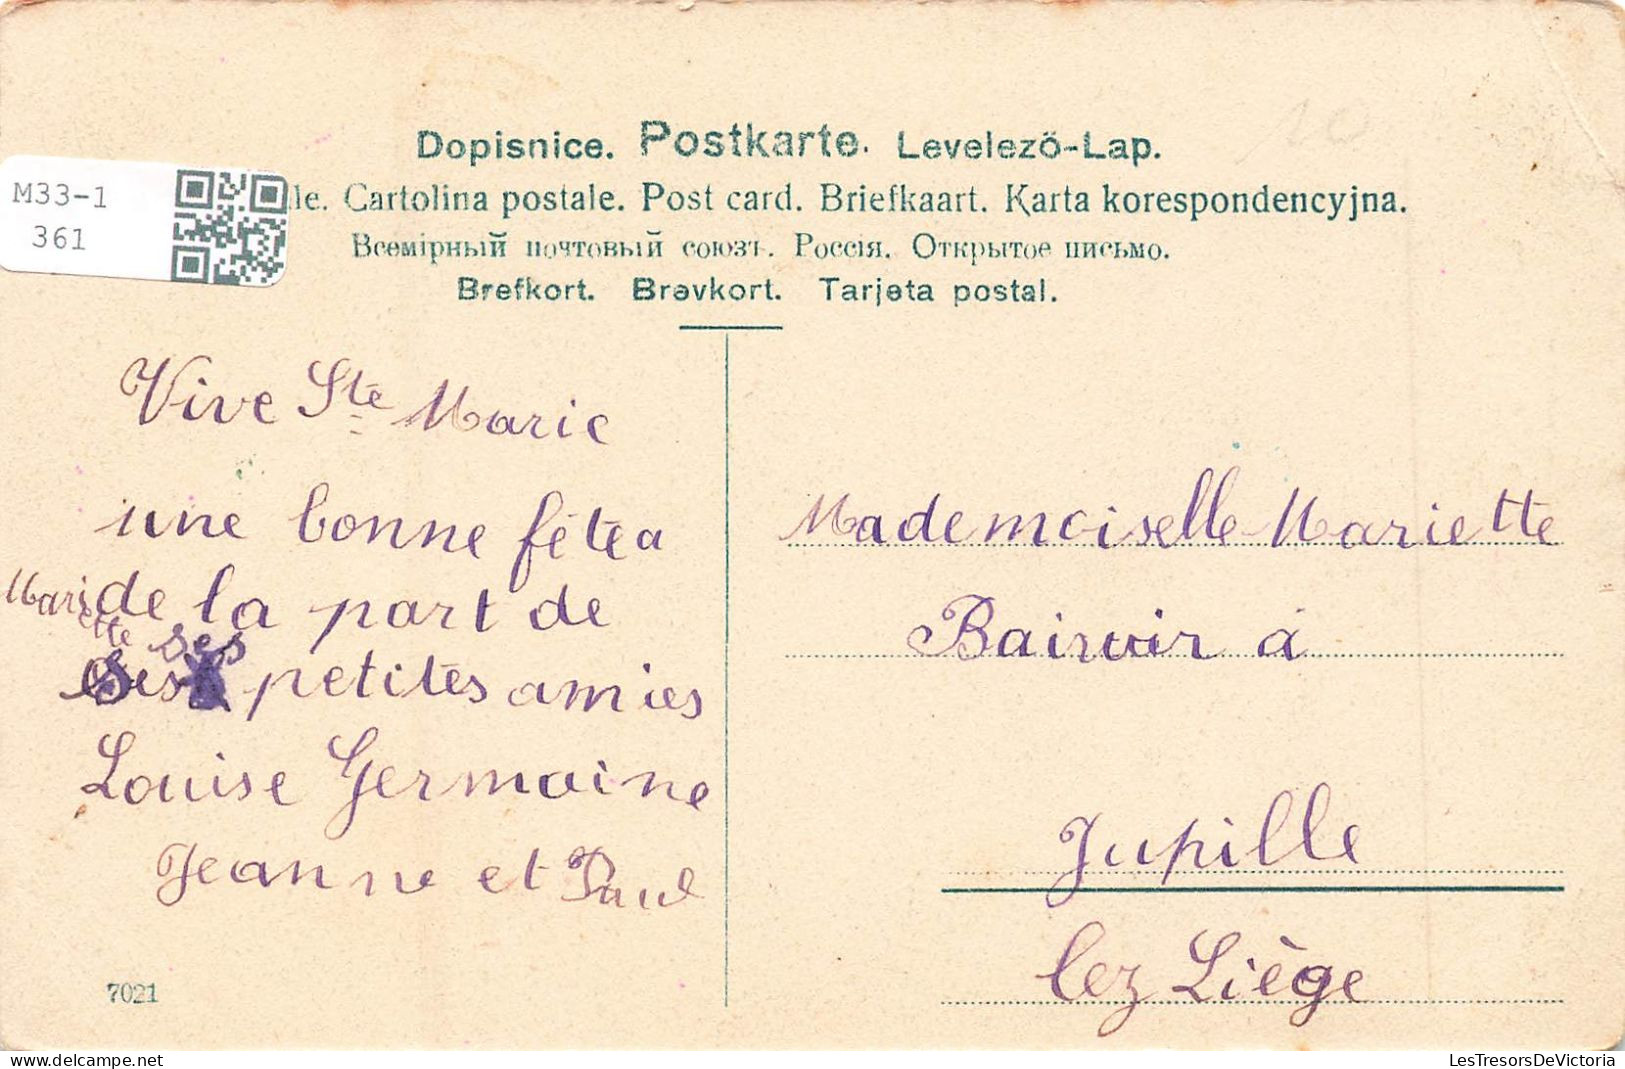 Dopisnice. Postkarte. Levelező-Lap.
M33-1
361
le. Cartolina postale. Post card. Briefkaart. Karta korespondencyjna.
Всемірный почтовый союзъ. Россія. Открытое письмо.
Brefkort. Brevkort. Tarjeta postal.
Vive Ste Marie
une bonne fête a
Mariette
de la part de
ses
petites amies
Louise Germaine
Jeanne et Paul
Mademoiselle Mariette
Bairvir à
Jupille
lez Liège
7021
LesTresorsDeVictoria